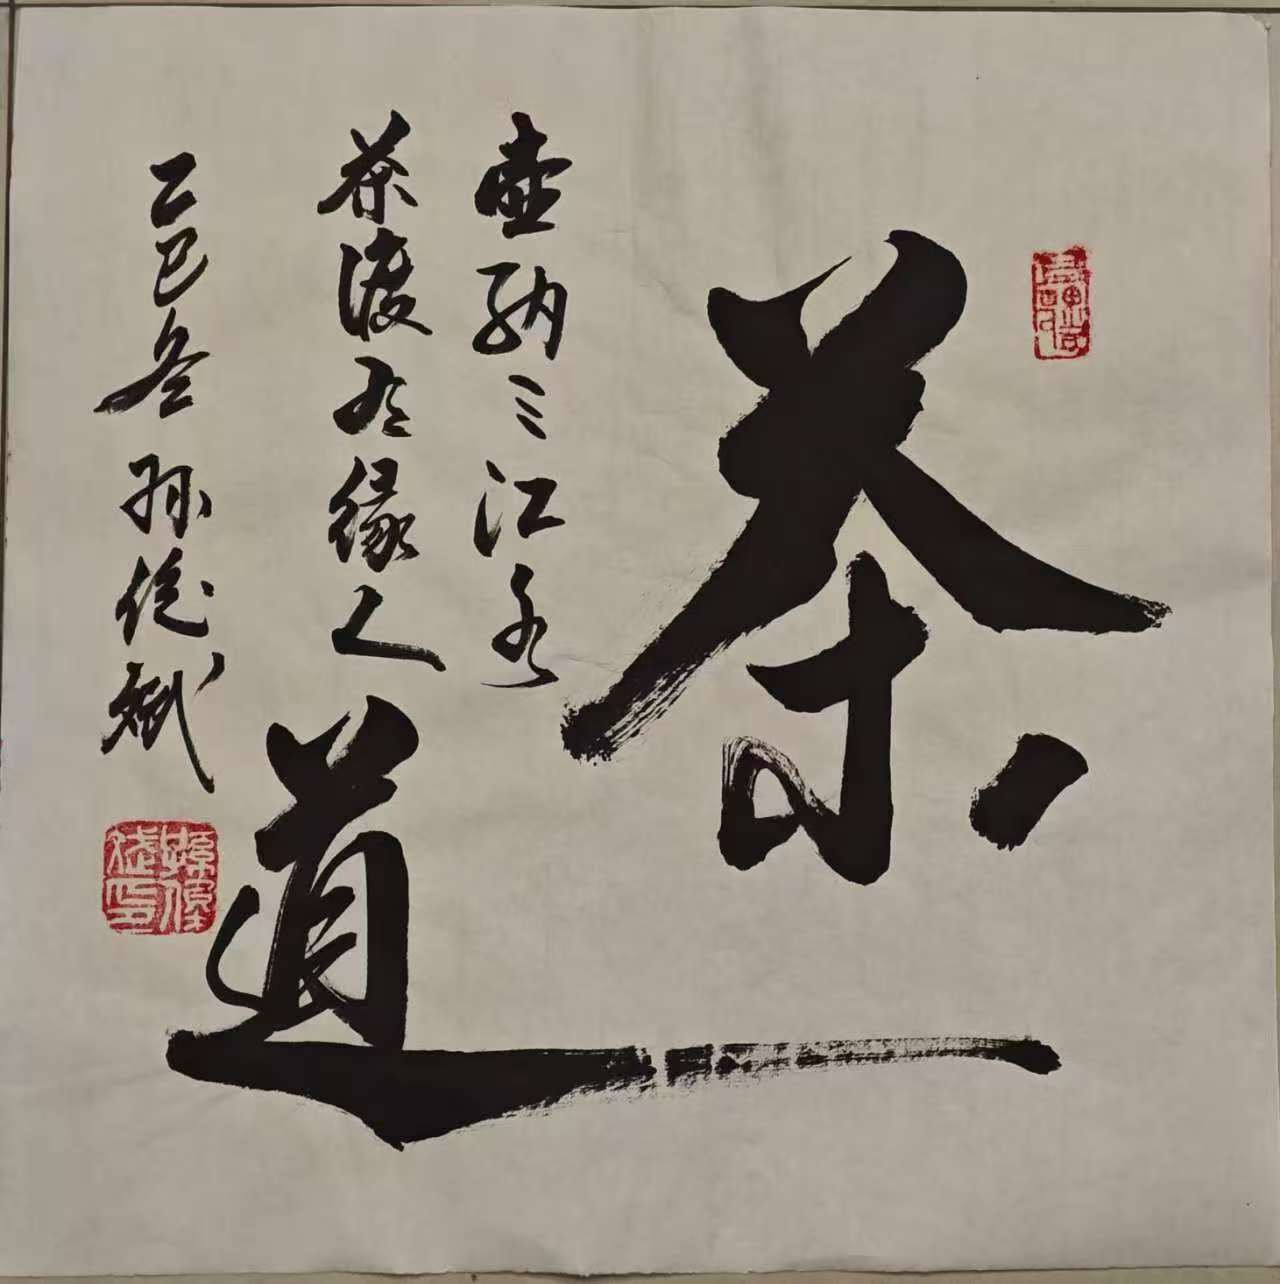 茶道
壶纳三江水
茶渡有缘人
乙巳冬 孙俊斌